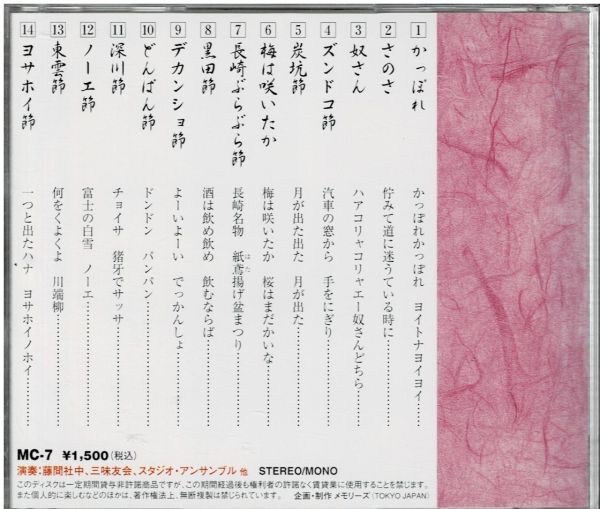 1 かっぽれ かっぽれかっぽれ ヨイトナヨイヨイ……
2 さのさ 佇みて道に迷うている時に……
3 奴さん ハアコリャコリャエー奴さんどちら……
4 ズンドコ節 汽車の窓から 手をにぎり……
5 炭坑節 月が出た出た 月が出た……
6 梅は咲いたか 梅は咲いたか 桜はまだかいな……
7 長崎ぶらぶら節 長崎名物 紙鳶揚げ盆まつり……
はた
8 黒田節 酒は飲め飲め 飲むならば……
9 デカンショ節 よーいよーい でっかんしょ……
10 どんぱん節 ドンドン パンパン……
11 深川節 チョイサ 猪牙でサッサ……
12 ノーエ節 富士の白雪 ノーエ……
13 東雲節 何をくよくよ 川端柳……
14 ヨサホイ節 一つと出たハナ ヨサホイノホイ……
MC-7 ¥1,500(税込)
演奏:藤間社中、三味友会、スタジオ・アンサンブル 他 STEREO/MONO
このディスクは一定期間貸与非許諾商品ですが、この期間経過後も権利者の許諾なく賃貸業に使用することを禁じます。
また個人的に楽しむなどのほかは、著作権法上、無断複製は禁じられています。 企画・制作 メモリーズ(TOKYO JAPAN)